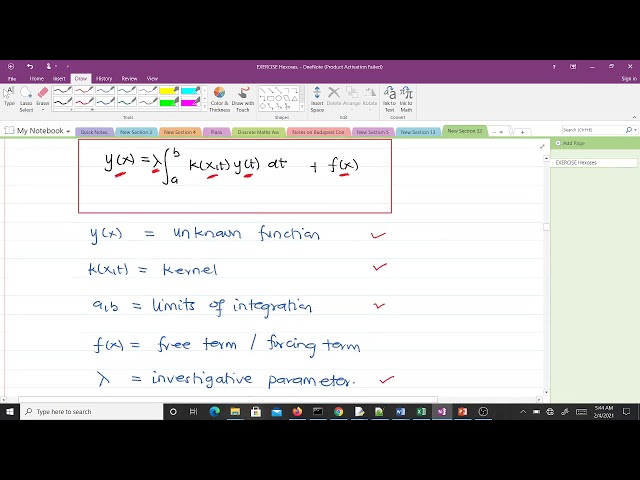 EXERCISE Hexoses. - OneNote (Product Activation Failed)
File Home Insert Draw History Review View
Sign in
Type Lasso Select Eraser Color & Thickness Draw with Touch Insert Space Delete Arrange Rotate Ink to Text Ink to Math
Tools Shapes Edit Convert
My Notebook Quick Notes New Section 3 New Section 4 Plans Discrete Maths Ass Notes on Budapest Con New Section 5 New Section 13 New Section 32
Add Page
EXERCISE Hexoses
y(x) = λ∫ₐᵇ k(x,t) y(t) dt + f(x)
y(x) = unknown function ✓
k(x,t) = kernel ✓
a,b = limits of integration ✓
f(x) = free term / forcing term
λ = investigative parameter. ✓
Type here to search
5:44 AM
2/4/2021